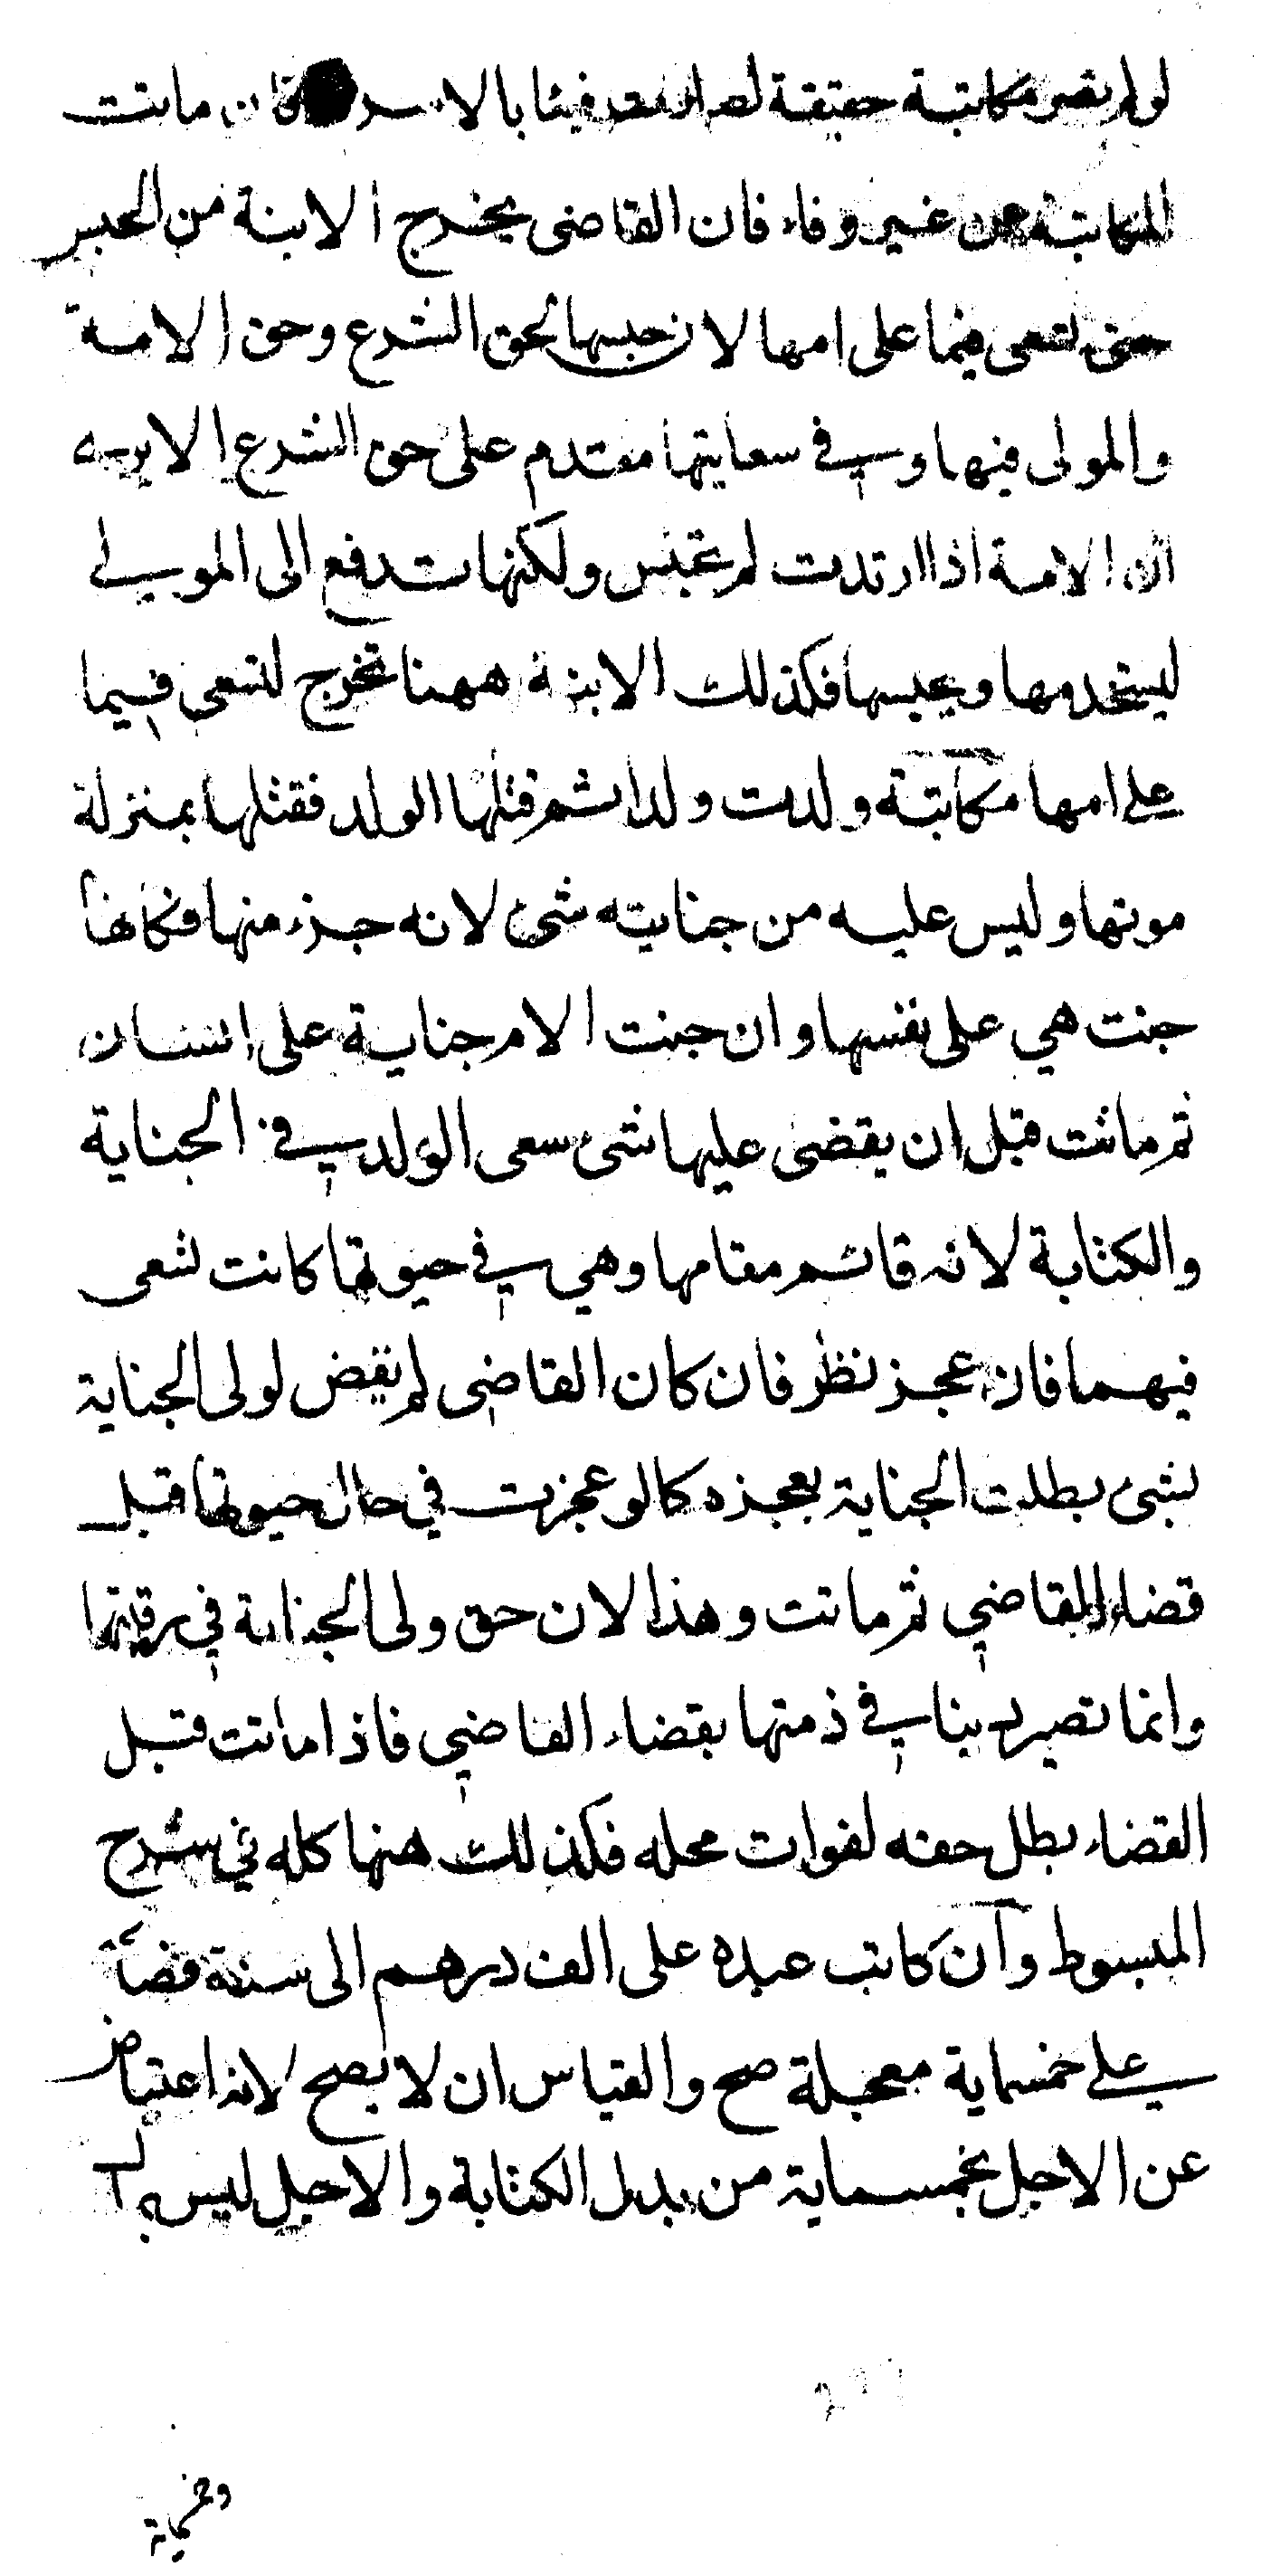 لو لم تصر مكاتبة حقيقة لصارت فيئا بالاسر فان ماتت
المكاتبة عن غير وفاء فان القاضى يخرج الابنة من الحبس
حتى تسعى فيما على امها لان حبسها لحق الشرع وحق الامة
والمولى فيها وفي سعايتها مقدم على حق الشرع الا يرى
ان الامة اذا ارتدت لم تحبس ولكنها تدفع الى المولى
ليستخدمها ويحبسها فكذلك الابنة ههنا تخرج لتسعى فيما
على امها مكاتبة ولدت ولدا ثم قتلها الولد فقتلها بمنزلة
موتها وليس عليه من جنايته شئ لانه جزء منها فكانها
جنت هي على نفسها وان جنت الام جناية على انسان
ثم ماتت قبل ان يقضى عليها شئ سعى الولد في الجناية
والكتابة لانه قائم مقامها وهي في حيوتها كانت تسعى
فيهما فان عجز نظر فان كان القاضي لم يقض لولى الجناية
بشئ بطلت الجناية بعجزه كما لو عجزت في حال حيوتها قبل
قضاء القاضي ثم ماتت وهذا لان حق ولى الجناية في رقبتها
وانما تصير دينا في ذمتها بقضاء القاضي فاذا ماتت قبل
القضاء بطل حقه لفوات محله فكذلك ههنا كله في شرح
المبسوط وان كاتب عبده على الف درهم الى سنة فصالحه
على خمسماية معجلة صح والقياس ان لا يصح لانه اعتياض
عن الاجل بخمسماية من بدل الكتابة والاجل ليس بمال
وخمسماية